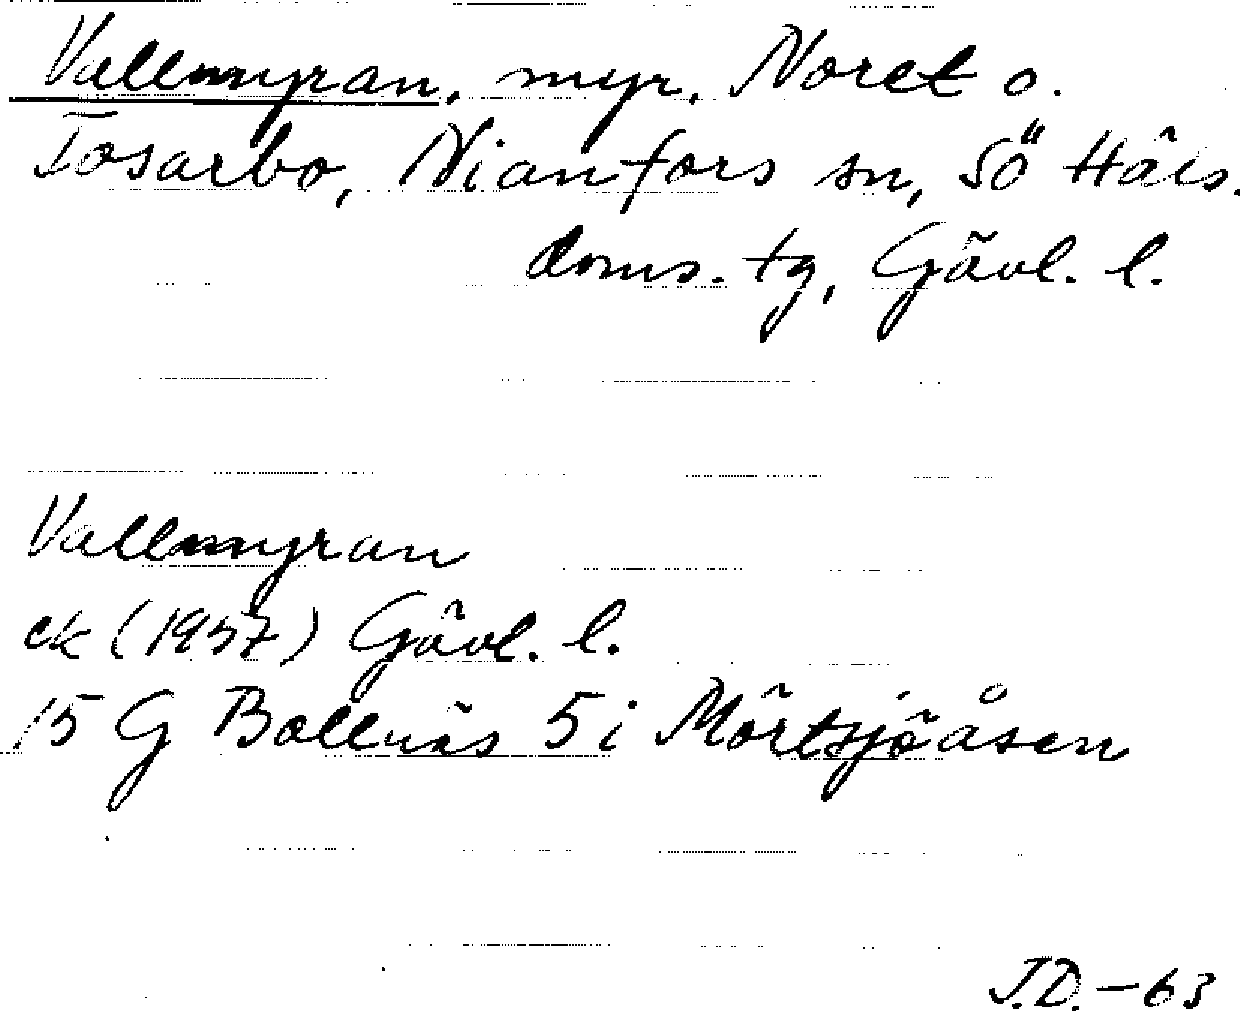 Vallmyran, myr, Noret o.
Tosarbo, Nianfors sn, Sö Häls.
doms. tg, Gävl. l.
Vallmyran
ek (1957) Gävl. l.
15 G Bollnäs 5 i Mörtsjöåsen
J.D. - 63